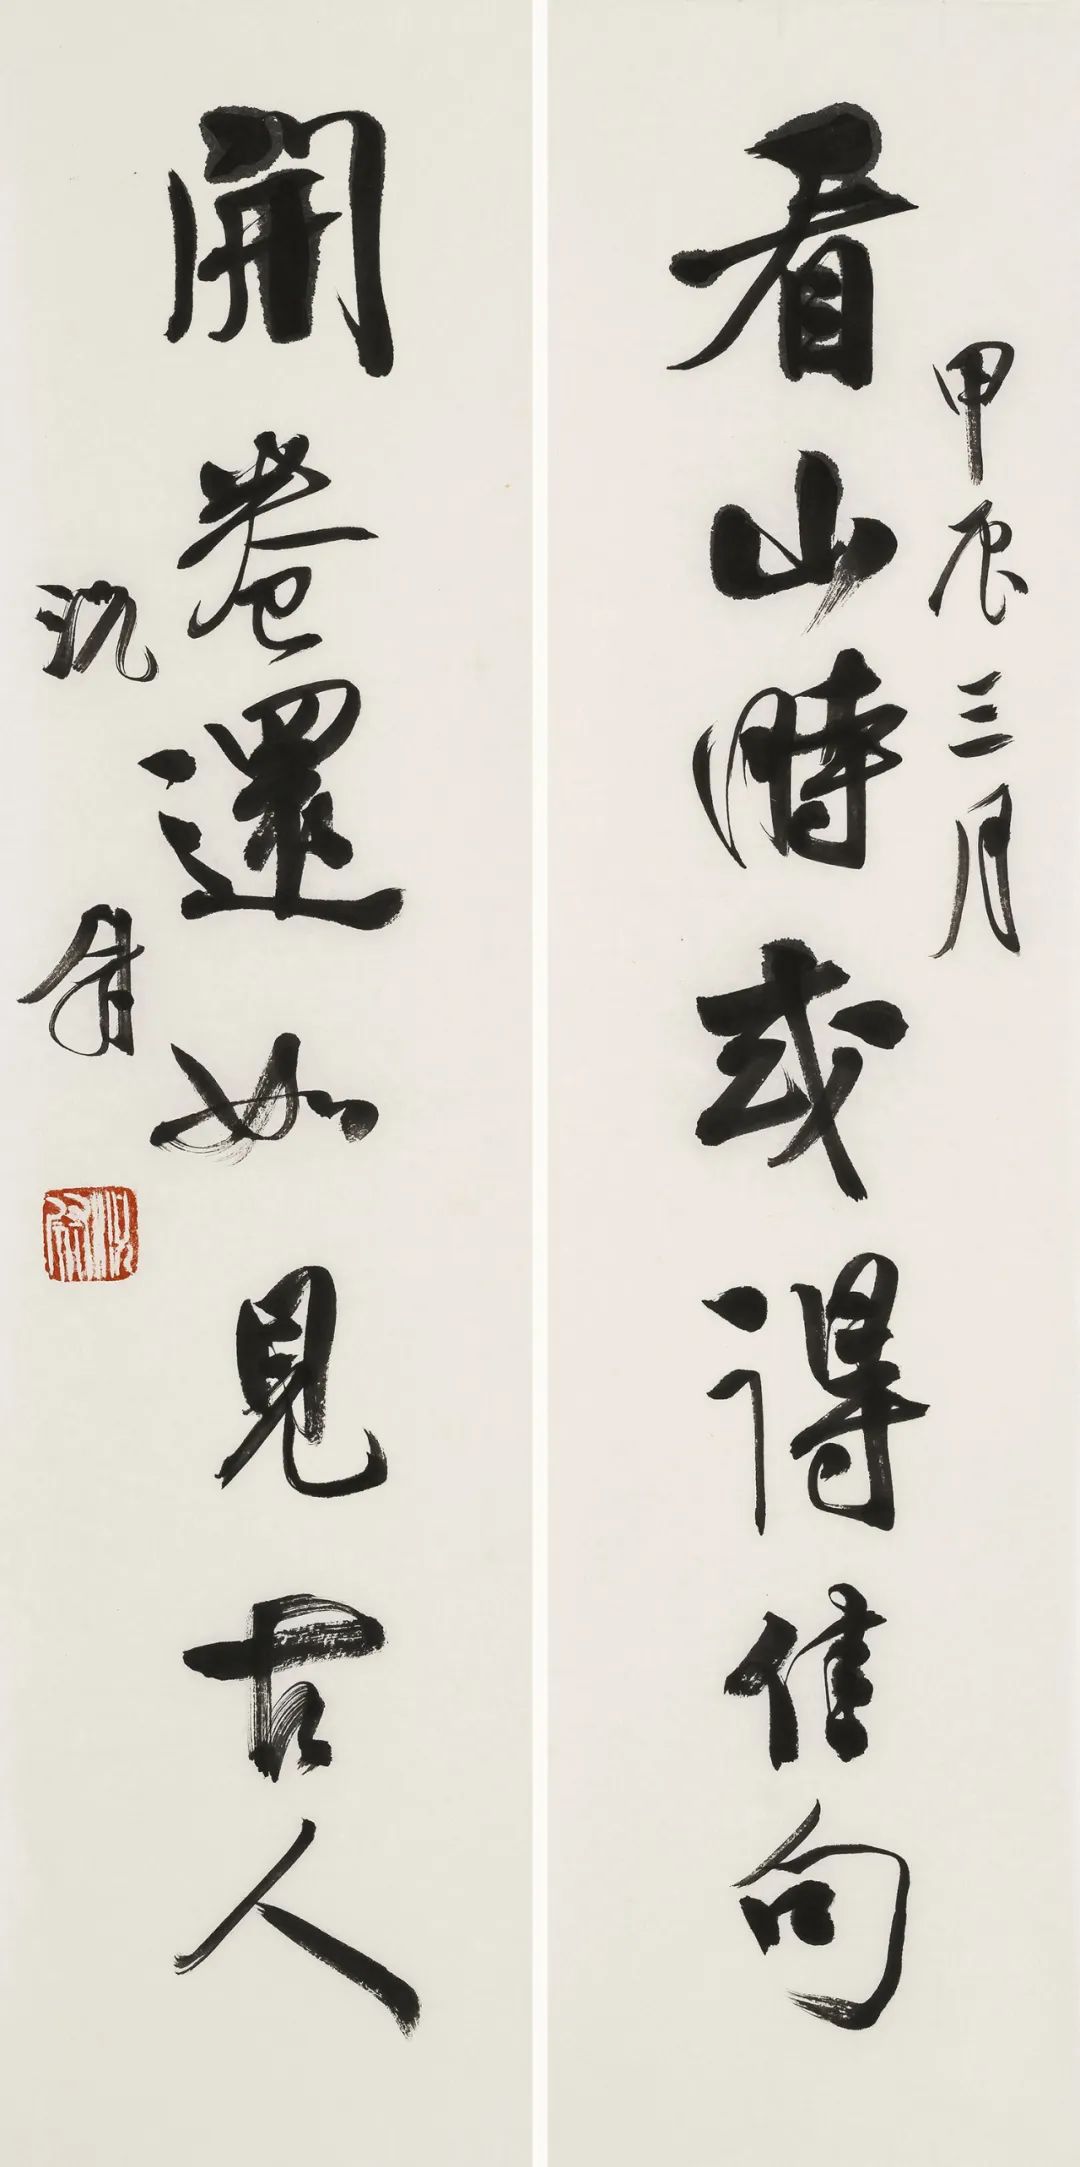 甲辰三月
看山時或得佳句
開卷還如見古人